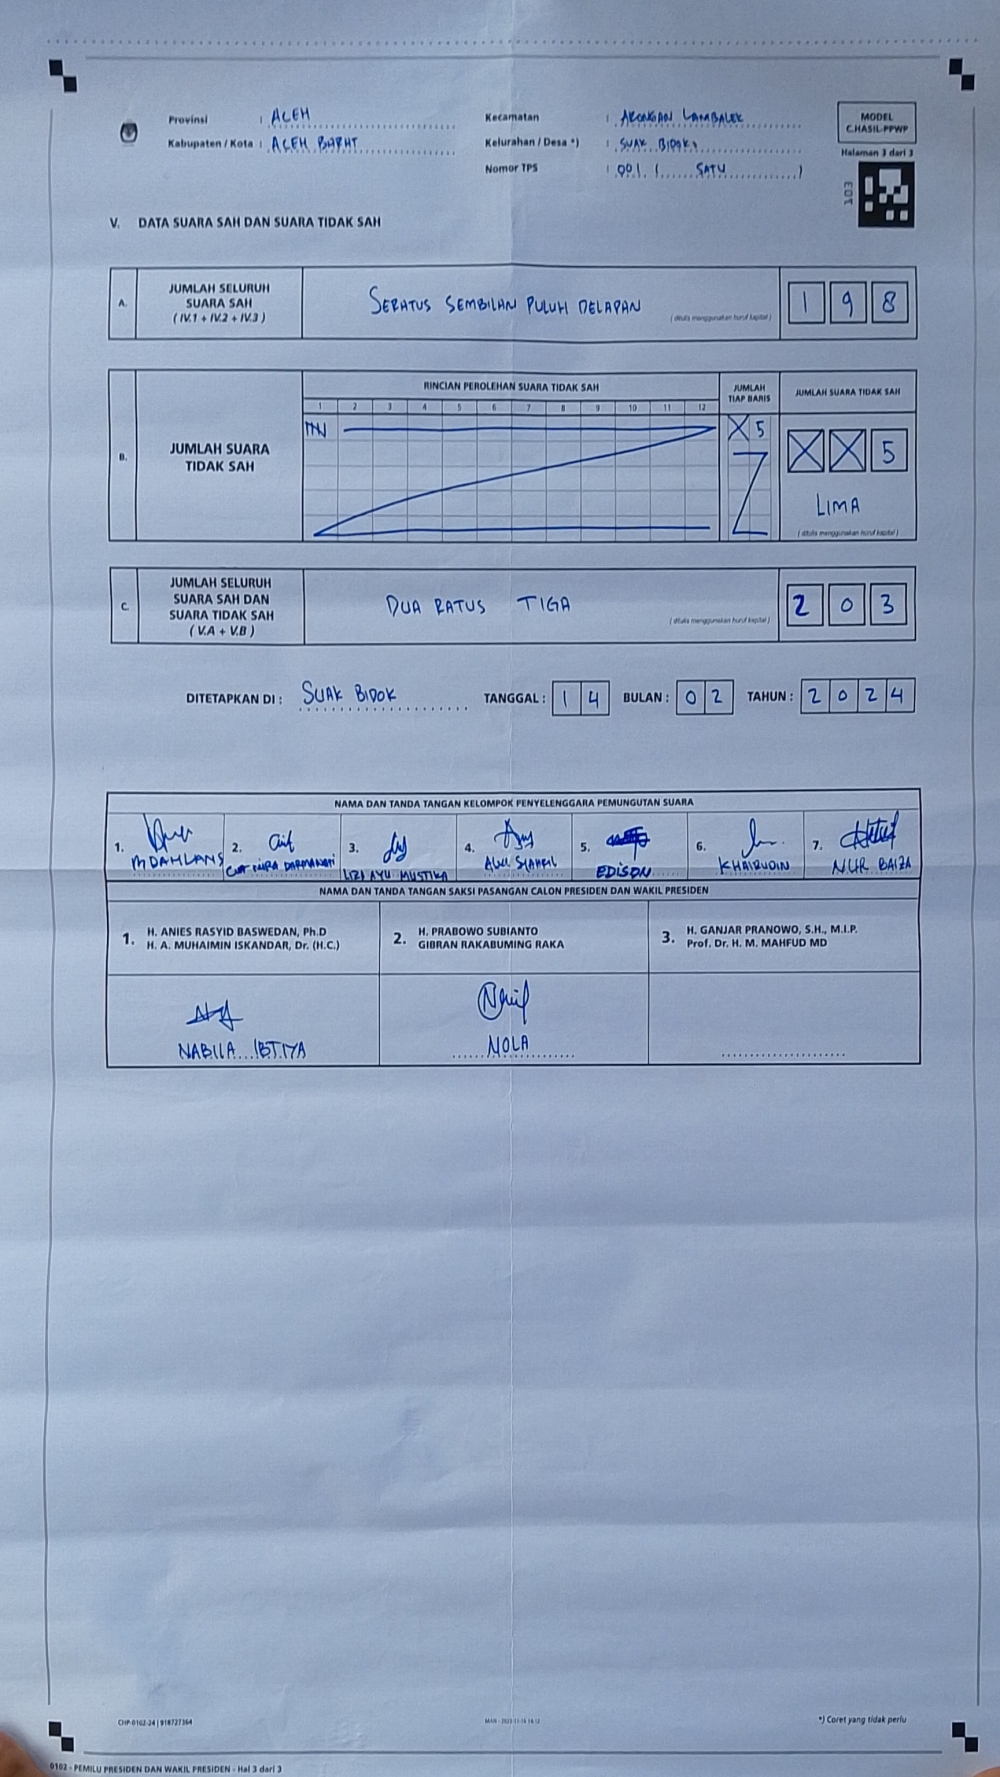 Provinsi : ACEH
Kabupaten / Kota : ACEH BARAT
Kecamatan : ARONGAN LAMBALEK
Kelurahan / Desa *) : SUAK BIDOK
Nomor TPS : 001 ( SATU )
MODEL
C.HASIL-PPWP
Halaman 3 dari 3
103
V. DATA SUARA SAH DAN SUARA TIDAK SAH
A.
JUMLAH SELURUH
SUARA SAH
( IV.1 + IV.2 + IV.3 )
SERATUS SEMBILAN PULUH DELAPAN
( ditulis menggunakan huruf kapital )
1 9 8
B.
JUMLAH SUARA
TIDAK SAH
RINCIAN PEROLEHAN SUARA TIDAK SAH
1 2 3 4 5 6 7 8 9 10 11 12
JUMLAH
TIAP BARIS
X 5
JUMLAH SUARA TIDAK SAH
X X 5
LIMA
( ditulis menggunakan huruf kapital )
C.
JUMLAH SELURUH
SUARA SAH DAN
SUARA TIDAK SAH
( V.A + V.B )
DUA RATUS TIGA
( ditulis menggunakan huruf kapital )
2 0 3
DITETAPKAN DI : SUAK BIDOK TANGGAL : 1 4 BULAN : 0 2 TAHUN : 2 0 2 4
NAMA DAN TANDA TANGAN KELOMPOK PENYELENGGARA PEMUNGUTAN SUARA
1. M DAHLAN S
2. CUT DARMAWATI
3. LIZI AYU MUSTIKA
4.
5. EDISON
6. KHAIRUDIN
7. NUR BAIZA
NAMA DAN TANDA TANGAN SAKSI PASANGAN CALON PRESIDEN DAN WAKIL PRESIDEN
1. H. ANIES RASYID BASWEDAN, Ph.D
H. A. MUHAIMIN ISKANDAR, Dr. (H.C.)
2. H. PRABOWO SUBIANTO
GIBRAN RAKABUMING RAKA
3. H. GANJAR PRANOWO, S.H., M.I.P.
Prof. Dr. H. M. MAHFUD MD
NABILA IBTIYA
NOLA
CHP-0102-24 | 918727364
*) Coret yang tidak perlu
0102 - PEMILU PRESIDEN DAN WAKIL PRESIDEN - Hal 3 dari 3